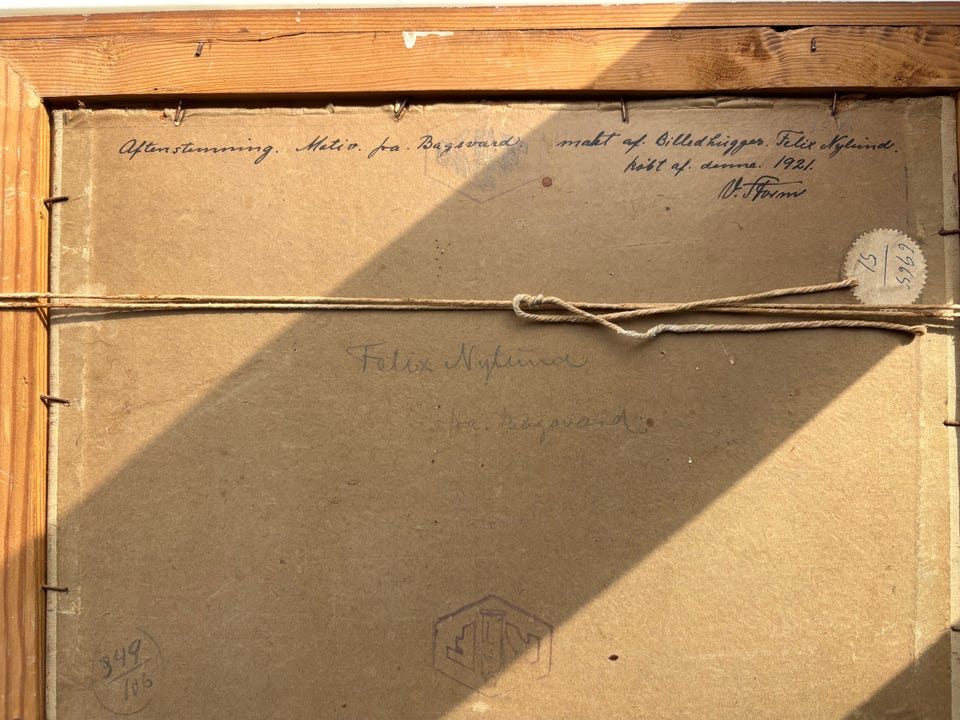 Aftenstemning. Motiv. fra. Bagsværd. malet af. Billedhugger. Felix Nylund.
købt af. denne. 1921.
V. Storm
15/6965
Felix Nylund
fra. Bagsværd.
349/106